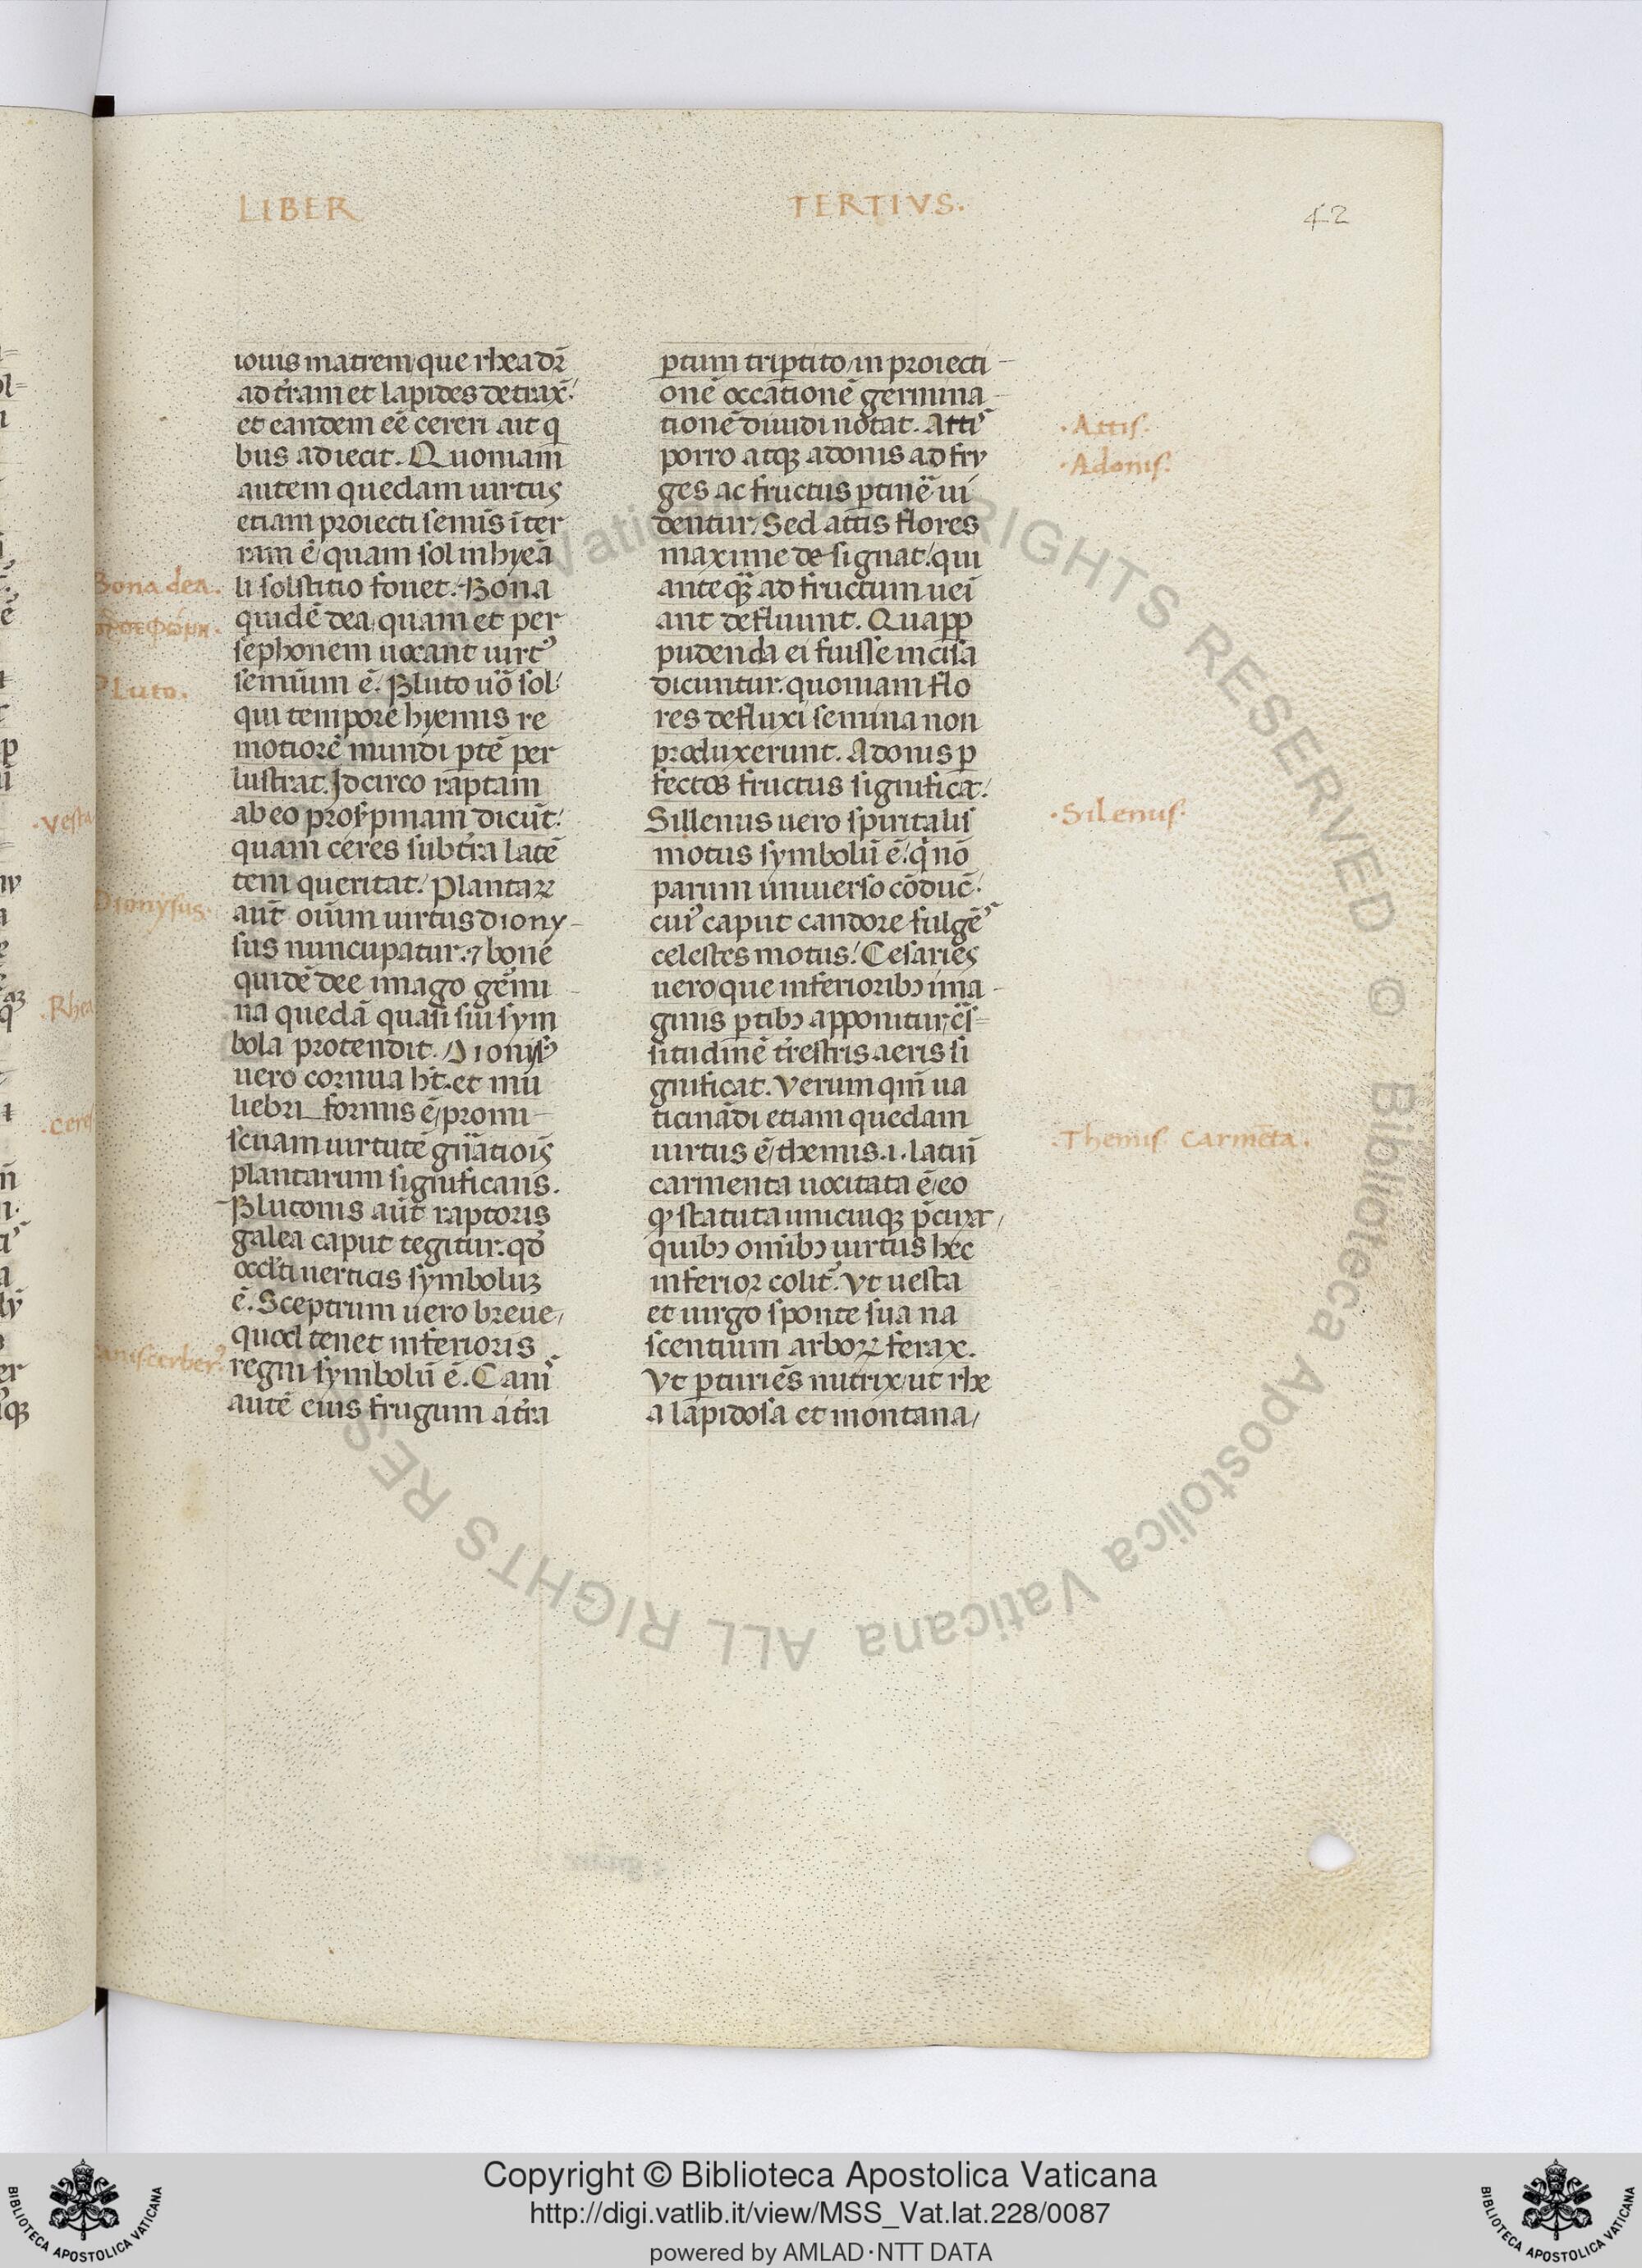 LIBER TERTIVS.
42
iouis matrem/que rhea dr̄
ad tr̄am et lapides detrax̄:
et eandem eē cereri ait q
bus adiecit. Quoniam
autem quedam uirtus
etiam proiecti semīs ī ter
ram ē/quam sol in hyeā
li solstitio fouet. Bona
quidē dea quam et per
sephonem uocant uirtꝰ
seminum ē. Pluto uō sol:
qui tempore hyemis re
motiorē mundi ꝑtē per
lustrat. Idcirco raptam
ab eo pros̄pinam dicūt:
quam ceres sub tr̄a latē
tem queritat. Plantaꝝ
aūt oīum uirtus diony-
sus nuncupatur. ⁊ bone
quidē dee imago gēmi
na quedā quasi sui sym
bola protendit. Dionysꝰ
uero cornua ht̄. et mu
liebri formis ē/promi-
scuam uirtutē gn̄ationis
plantarum significans.
Plutonis aūt raptoris
galea caput tegitur. qd̄
occl̄ti uerticis symboluꝫ
ē. Sceptrum uero breue/
quod tenet inferioris
regni symbolū ē. Canis
autē eius frugum a tr̄a
ꝑtum triꝑtito/in proiecti-
onē occationē germina-
tionē diuidi notat. Attis
porro atqꝫ adonis ad fry
ges ac fructus ꝑtinē ui
dentur. Sed attis flores
maxime designat: qui
anteqꝫ ad fructum ueī
ant defluunt. Quapp̄
pudenda ei fuisse incisa
dicuntur. quoniam flo
res defluxi semina non
produxerunt. Adonis ꝑ
fectos fructus significat:
Sillenus uero spiritalis
motus symbolū ē: q̄ nō
parum uniuerso cōduc̄:
cuiꝰ caput candore fulgēs
celestes motus: Cesaries
uero que inferioribꝫ ima-
ginis ꝑtibꝫ apponitur/cras-
situdinē tr̄estris aeris si
gnificat. Verum qm̄ ua
ticinādi etiam quedam
uirtus ē/themis .i. latin̄
carmenta uocitata ē/eo
ꝙ statuta unicuiqꝫ p̄cinat/
quibꝫ omībꝫ uirtus hec
inferior colit̄. Vt uesta
et uirgo sponte sua na
scentium arboꝝ ferax.
Vt ꝑturiēs nutrix/ut rhe
a lapidosa et montana/
Bona dea.
Pluto.
Dionysus.
canis cerberꝰ
.Vesta
.Rhea
.ceres
.Attis.
.Adonis.
.Silenus.
.Themis carmēta.
Copyright © Biblioteca Apostolica Vaticana
http://digi.vatlib.it/view/MSS_Vat.lat.228/0087
powered by AMLAD·NTT DATA
BIBLIOTECA APOSTOLICA VATICANA
BIBLIOTECA APOSTOLICA VATICANA
© Biblioteca Apostolica Vaticana ALL RIGHTS RESERVED